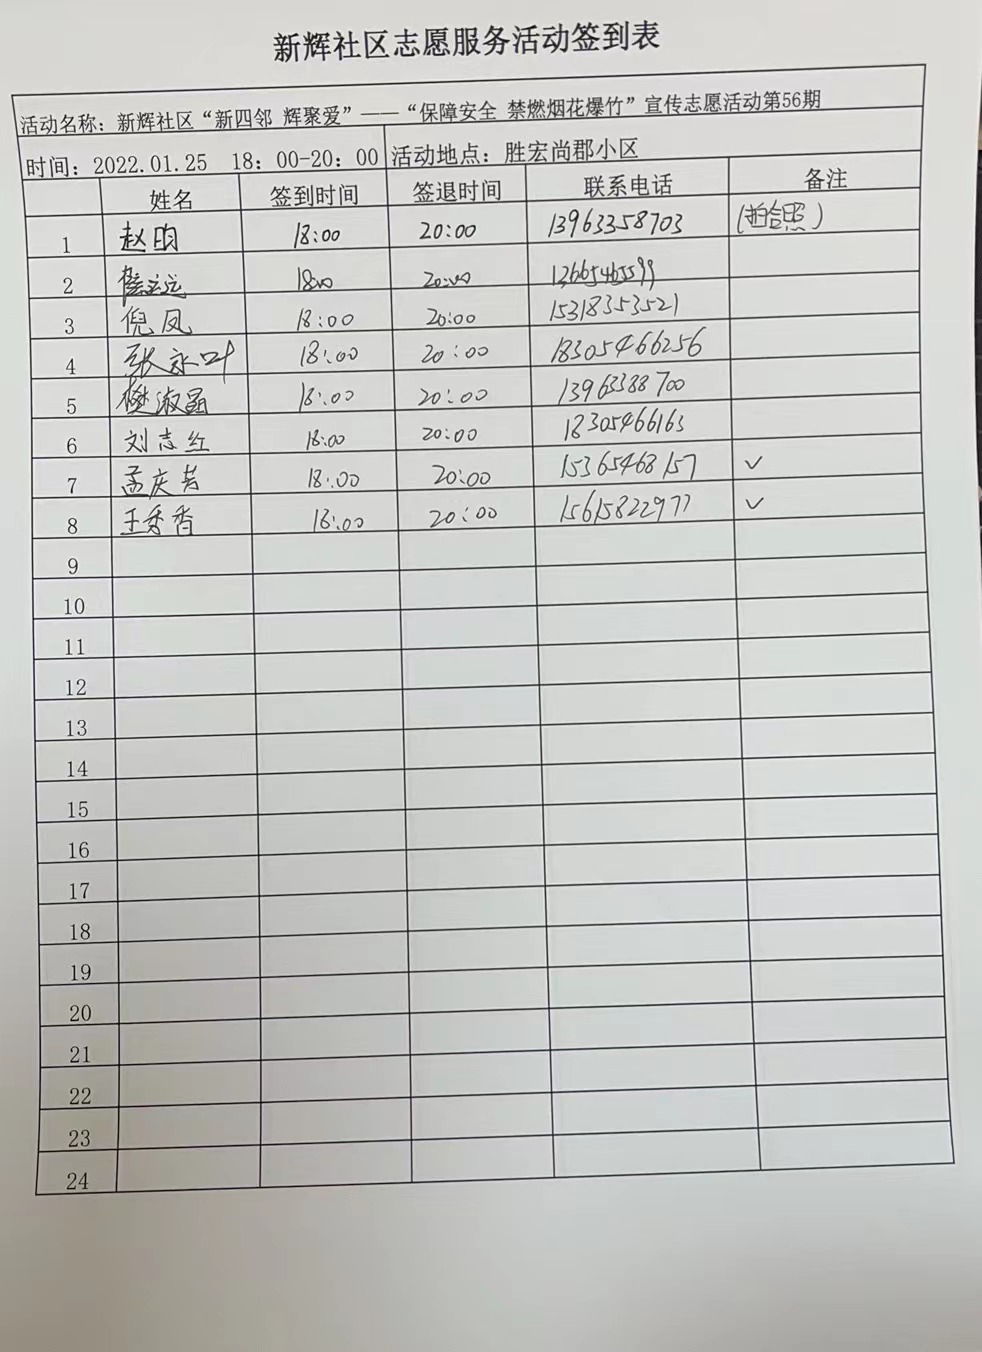 新辉社区志愿服务活动签到表
活动名称：新辉社区“新四邻 辉聚爱”——“保障安全 禁燃烟花爆竹”宣传志愿活动第56期
时间：2022.01.25 18：00-20：00 活动地点：胜宏尚郡小区
姓名 签到时间 签退时间 联系电话 备注
1 赵昀 18:00 20:00 13963358703 (拍合照)
2 18:00 20:00 13665465599
3 倪凤 18:00 20:00 15318353521
4 张永叶 18:00 20:00 18305466256
5 樊淑晶 18:00 20:00 13963388700
6 刘志红 18:00 20:00 18305466163
7 孟庆芳 18:00 20:00 15365468157 ✓
8 王秀香 18:00 20:00 15615822977 ✓
9
10
11
12
13
14
15
16
17
18
19
20
21
22
23
24